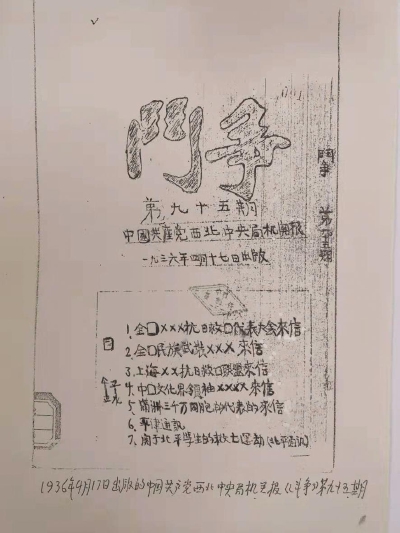 鬥爭
第九十五期
中國共產党西北中央局机関报
一九三六年四月十七日出版
鬥爭 第
目录
1. 全囗×××抗日救囗代表大会來信
2. 全囗民族武裝×××來信
3. 上海××抗日救囗联盟來信
4. 中囗文化界領袖××××來信
5. 滿洲三千万同胞的代表的來信
6. 平津通訊
7. 関于北平学生的救亡運動(北平通訊)
1936年4月17日出版的中国共产党西北中央局机关报《斗争》第九十五期